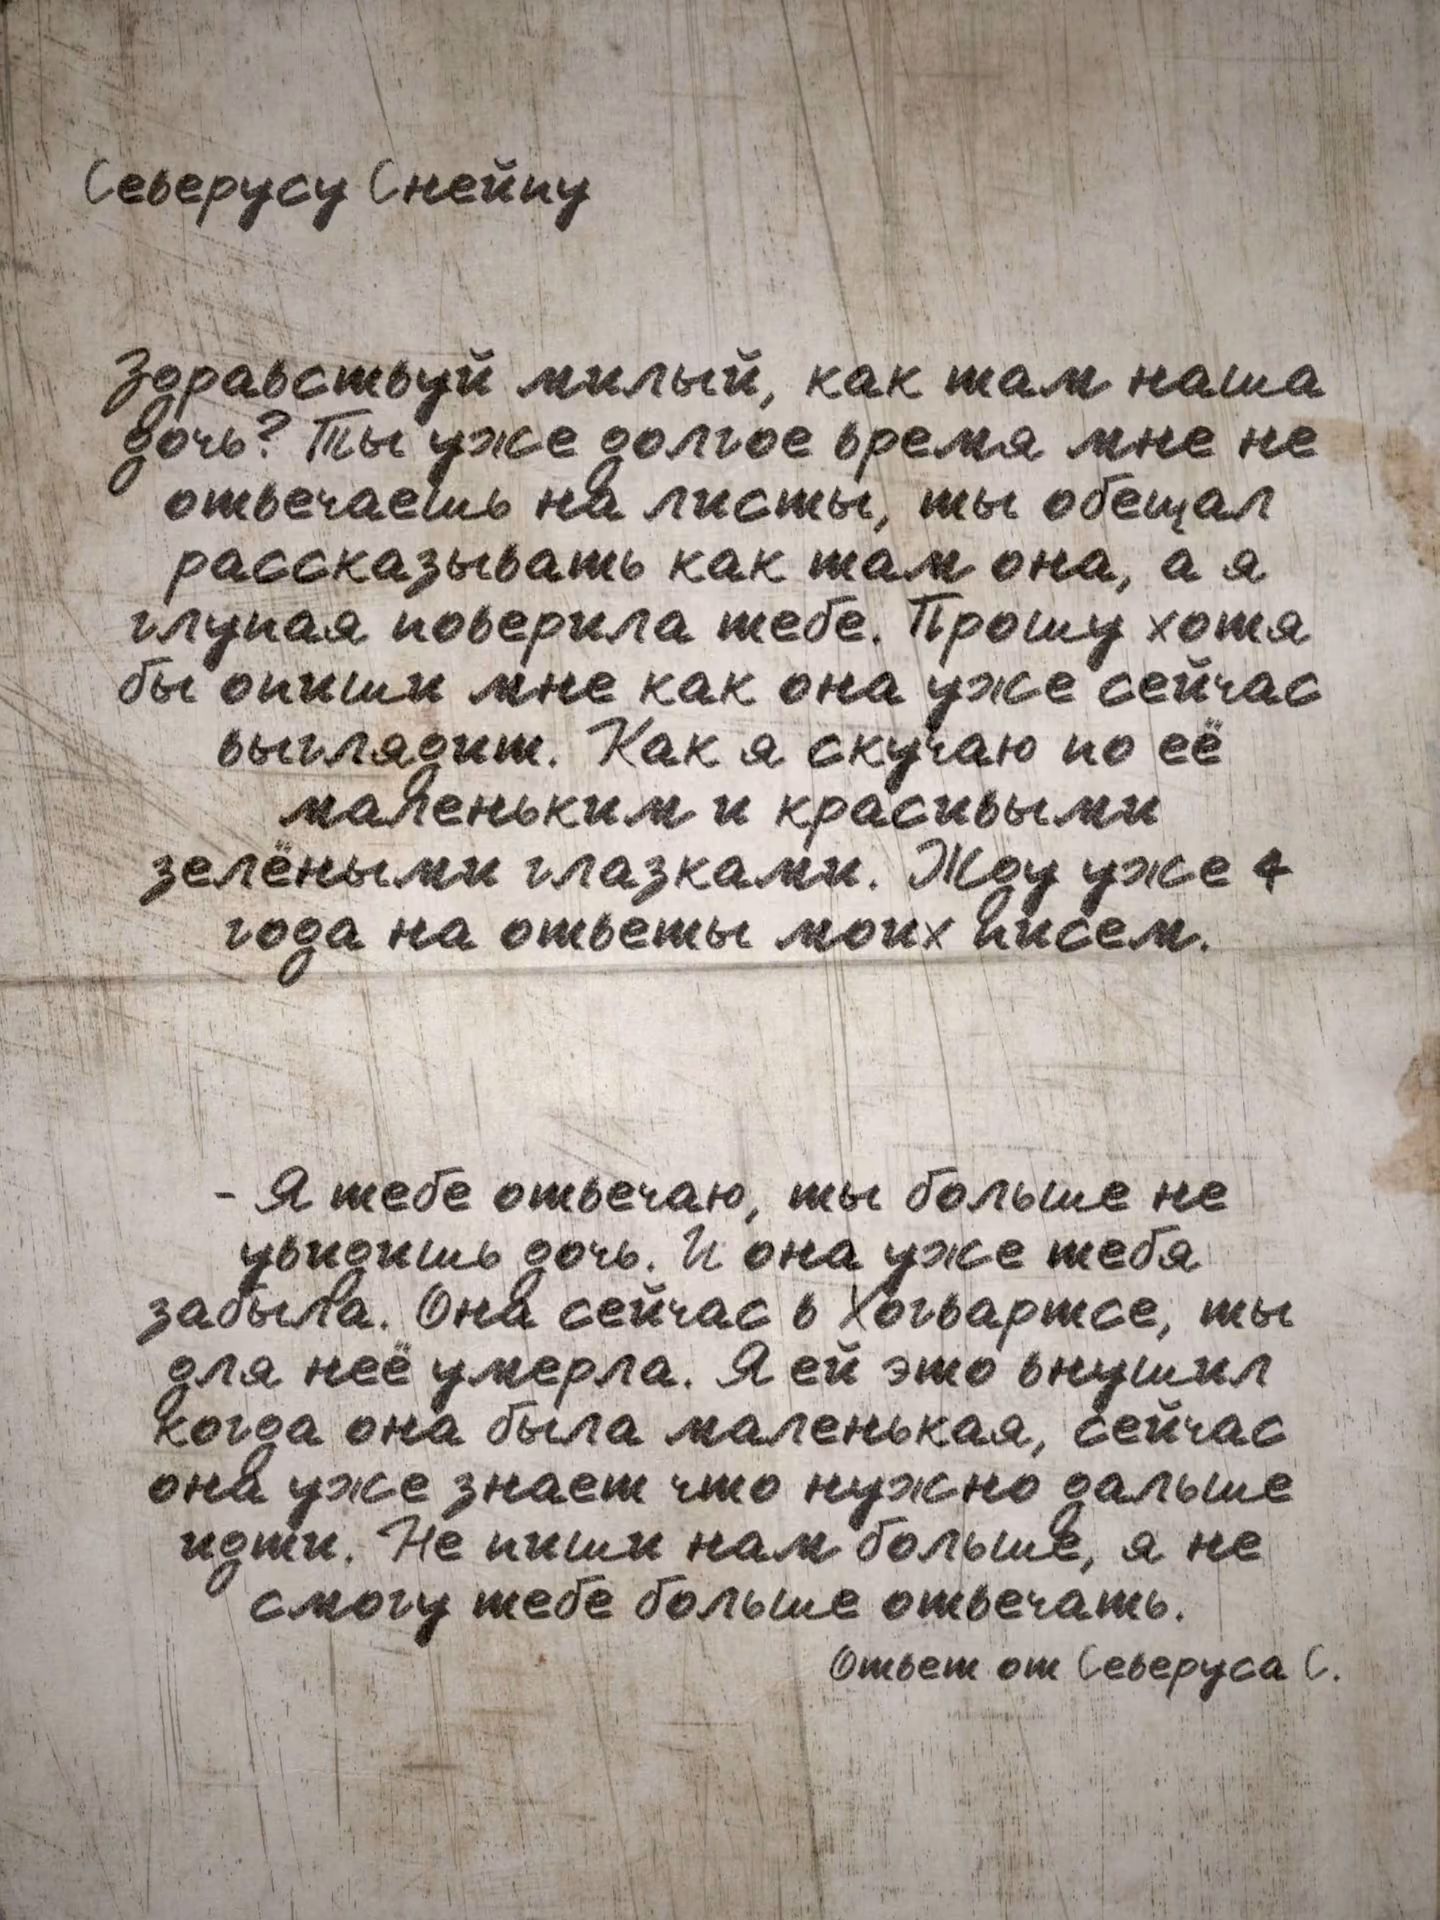 Северусу Снейпу
Здравствуй милый, как там наша
дочь? Ты уже долгое время мне не
отвечаешь на листы, ты обещал
рассказывать как там она, а я
глупая поверила тебе. Прошу хотя
бы опиши мне как она уже сейчас
выглядит. Как я скучаю по её
маленьким и красивыми
зелёными глазками. Жду уже 4
года на ответы моих писем.
- Я тебе отвечаю, ты больше не
увидишь дочь. И она уже тебя
забыла. Она сейчас в Хогвартсе, ты
для неё умерла. Я ей это внушил
когда она была маленькая, сейчас
она уже знает что нужно дальше
идти. Не пиши нам больше, я не
смогу тебе больше отвечать.
Ответ от Северуса С.